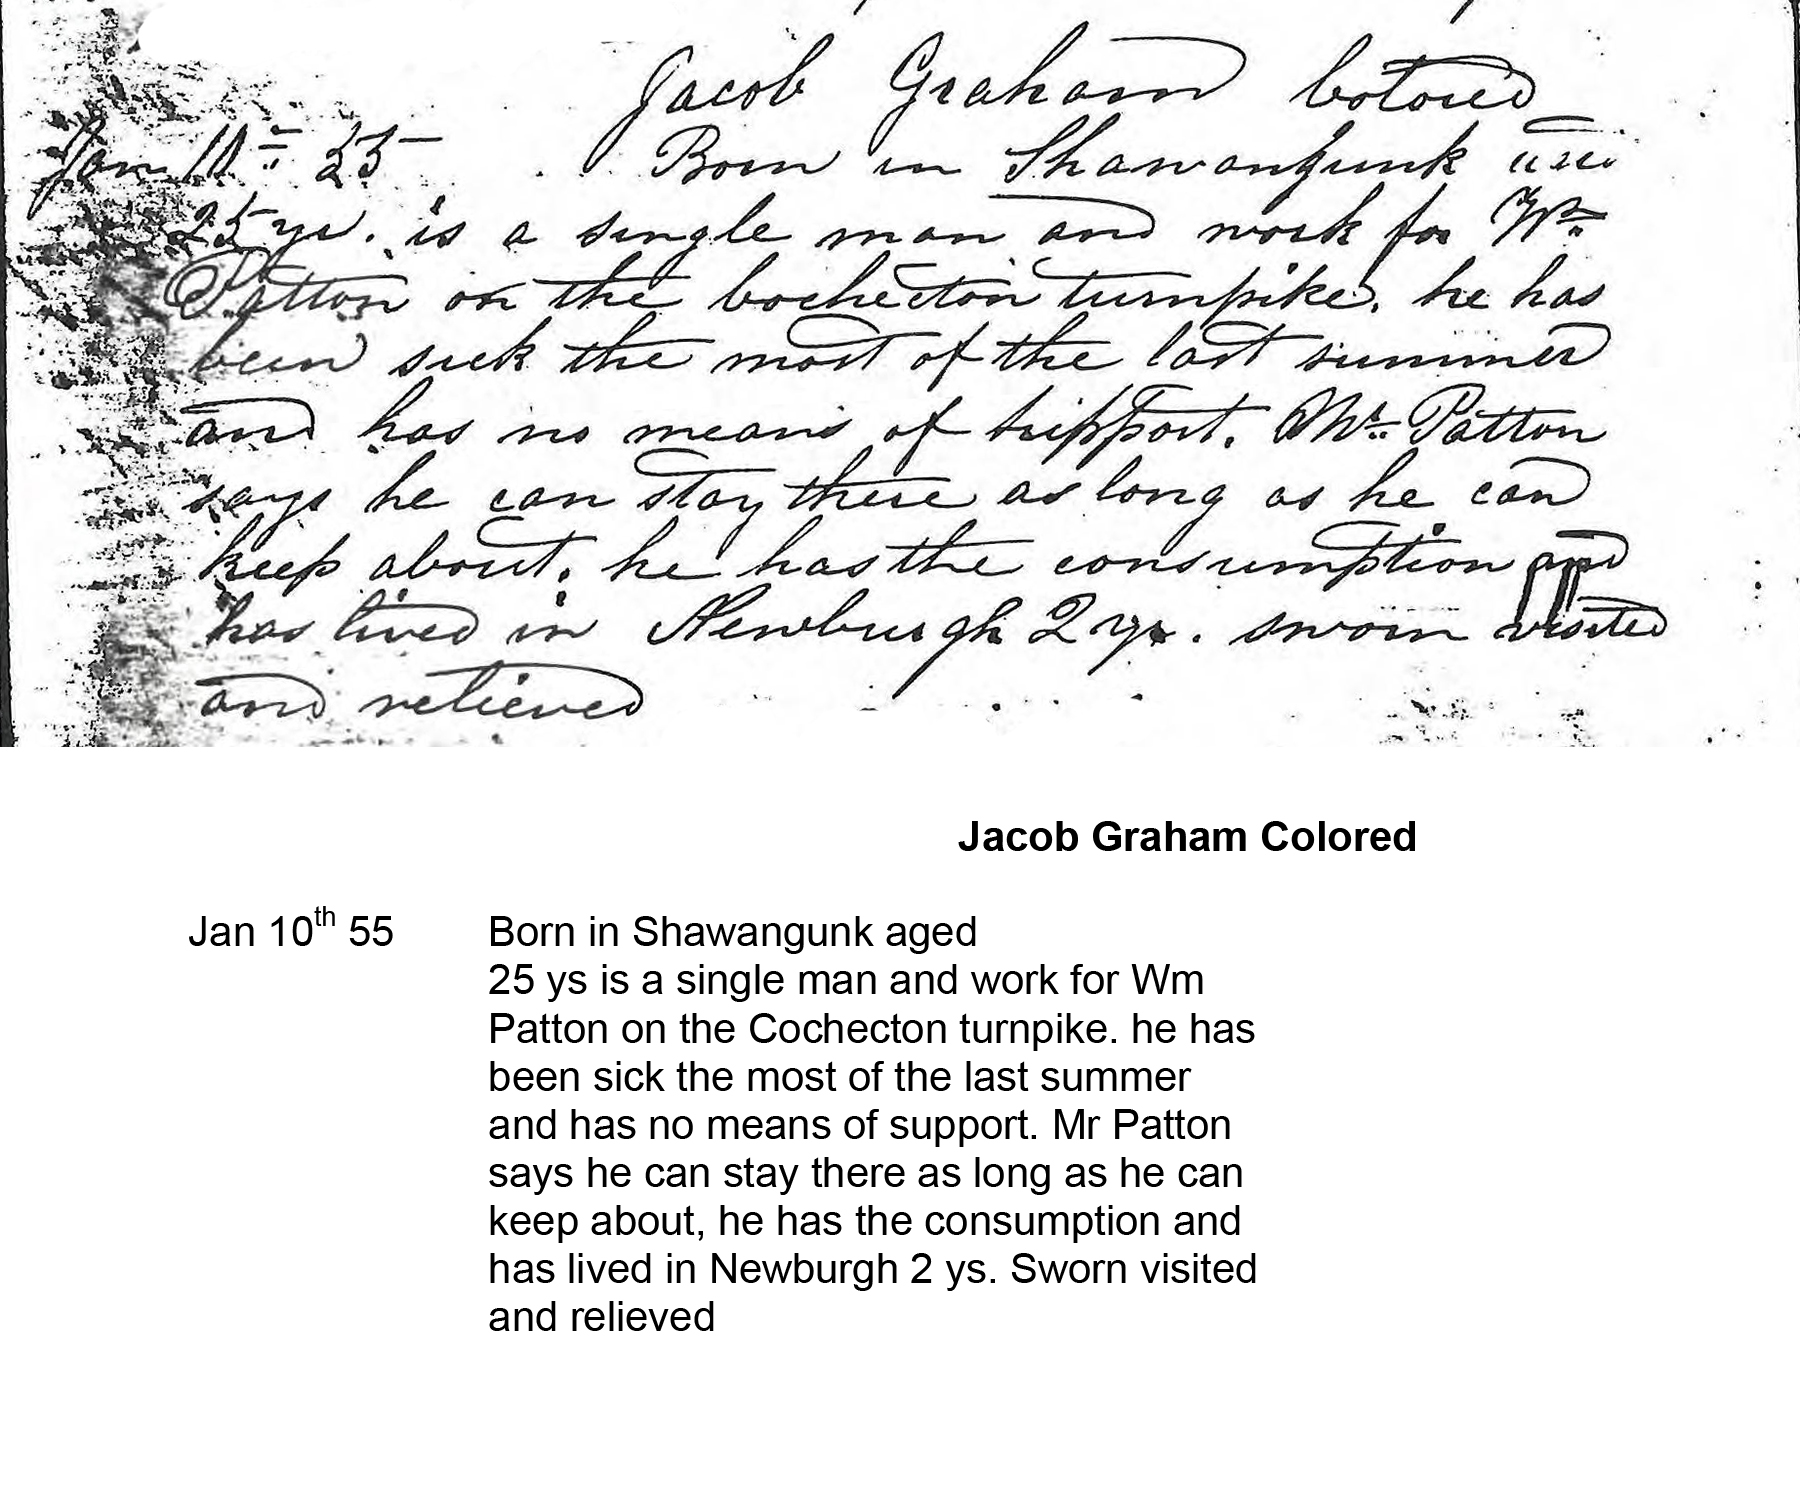 Jacob Graham Colored
Jan 10th 55 Born in Shawangunk
25 ys. is a single man and work for Wm
Patton on the Cochecton turnpike. he has
been sick the most of the last summer
and has no means of support. Mr Patton
says he can stay there as long as he can
keep about. he has the consumption and
has lived in Newburgh 2 ys. sworn visited
and relieved
Jacob Graham Colored
Jan 10th 55 Born in Shawangunk aged
25 ys is a single man and work for Wm
Patton on the Cochecton turnpike. he has
been sick the most of the last summer
and has no means of support. Mr Patton
says he can stay there as long as he can
keep about, he has the consumption and
has lived in Newburgh 2 ys. Sworn visited
and relieved